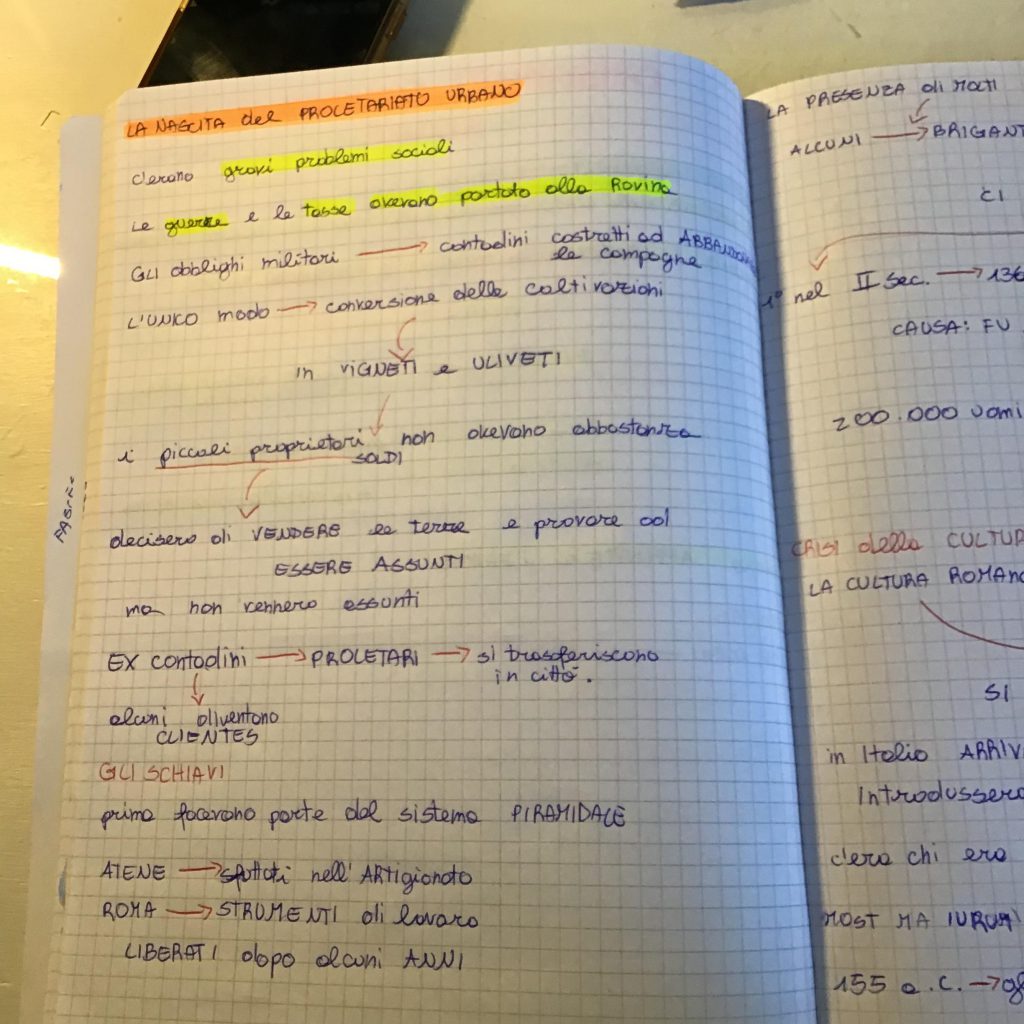 LA NASCITA del PROLETARIATO URBANO
c'erano gravi problemi sociali
Le guerre e le tasse avevano portato alla Rovina
GLI obblighi militari → contadini costretti ad ABBANDONARE
le campagne
L'UNICO modo → conversione delle coltivazioni
in VIGNETI e ULIVETI
i piccoli proprietari non avevano abbastanza
SOLDI
decisero di VENDERE le terre e provare ad
ESSERE ASSUNTI
ma non vennero assunti
EX contadini → PROLETARI → si trasferiscono
in città.
alcuni diventano
CLIENTES
GLI SCHIAVI
prima facevano parte del sistema PIRAMIDALE
ATENE → sfruttati nell'ARTigianato
ROMA → STRUMENTI di lavoro
LIBERATI dopo alcuni ANNI
LA PRESENZA di molti
ALCUNI → BRIGANT
CI
1° nel II sec. → 136
CAUSA: FU
200.000 uomi
CRISI della CULTUR
LA CULTURA ROMANA
SI
in Italia ARRIV
Introdussero
c'era chi era
155 a.C. →